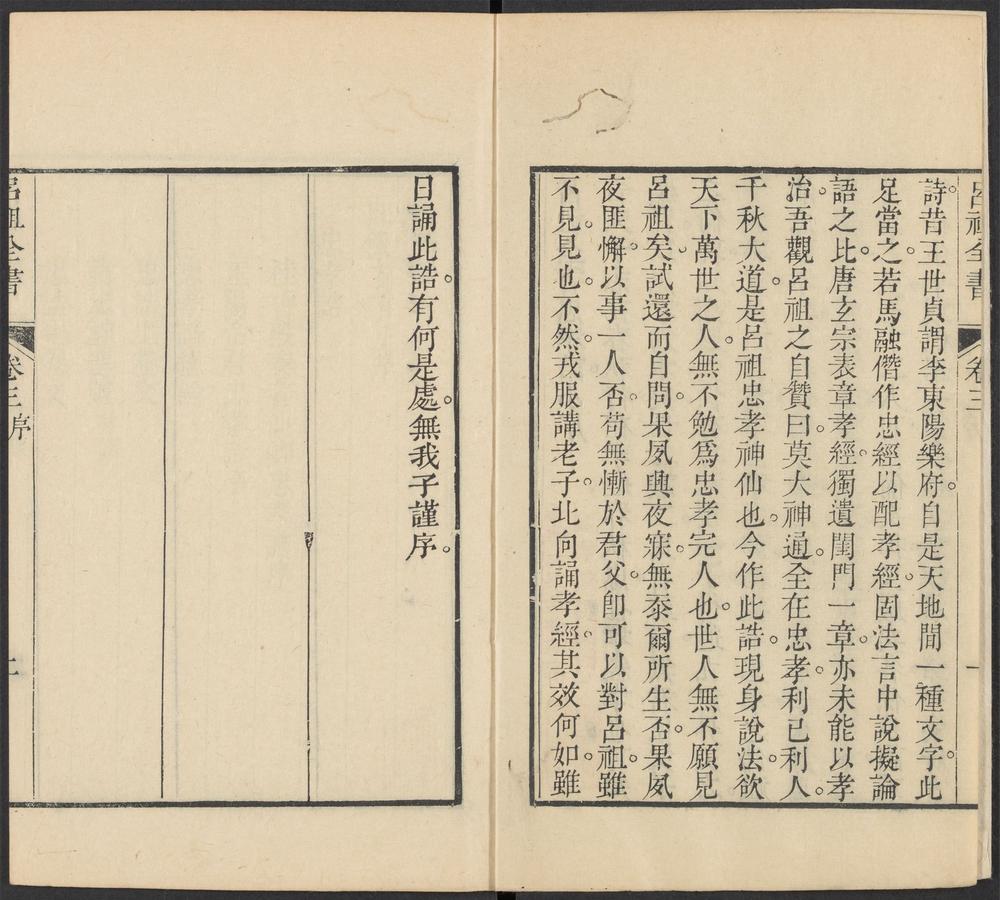 呂祖全書
卷三
一
詩昔王世貞謂李東陽樂府自是天地間一種文字此
足當之若馬融僭作忠經以配孝經固法言中說擬論
語之比唐玄宗表章孝經獨遺閨門一章亦未能以孝
治吾觀呂祖之自贊曰莫大神通全在忠孝利己利人
千秋大道是呂祖忠孝神仙也今作此誥現身說法欲
天下萬世之人無不勉爲忠孝完人也世人無不願見
呂祖矣試還而自問果夙興夜寐無忝爾所生否果夙
夜匪懈以事一人否苟無慚於君父卽可以對呂祖雖
不見見也不然戎服講老子北向誦孝經其效何如雖
日誦此誥有何是處無我子謹序
呂祖全書
卷三序